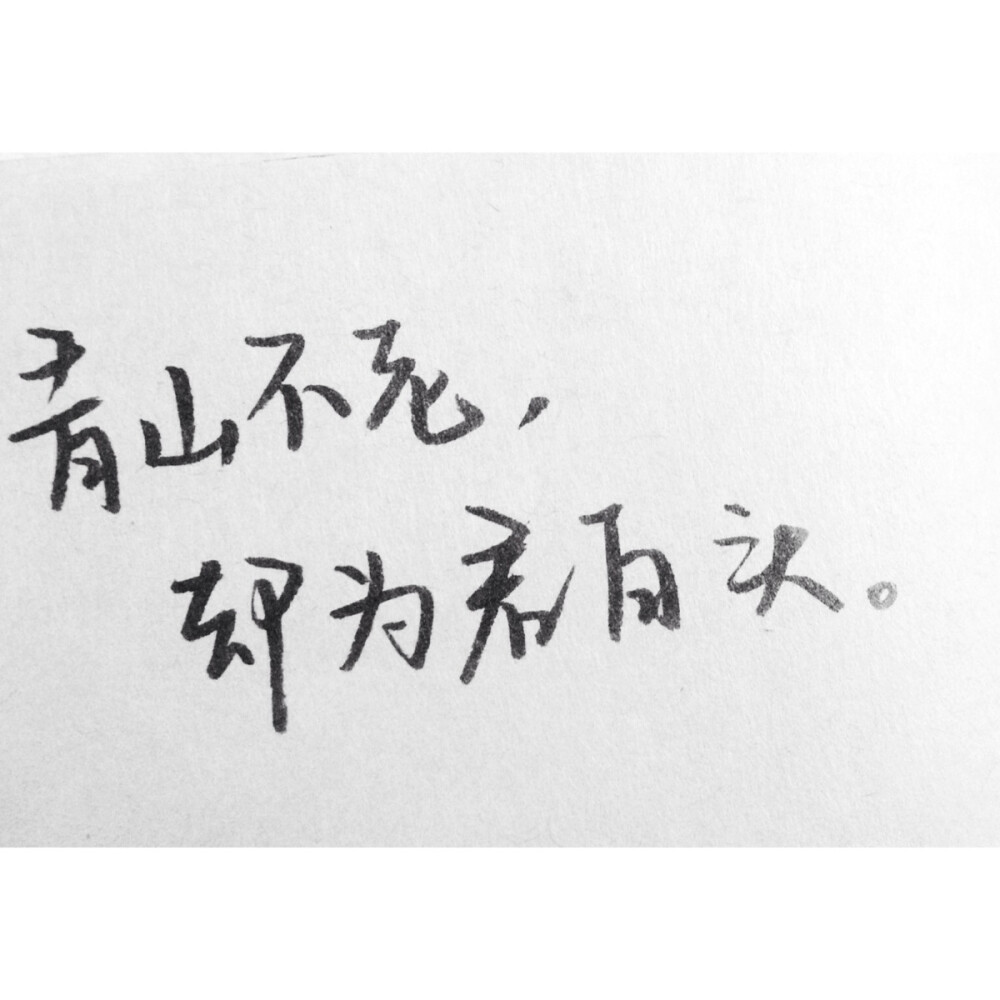 青山不老，
却为君白头。